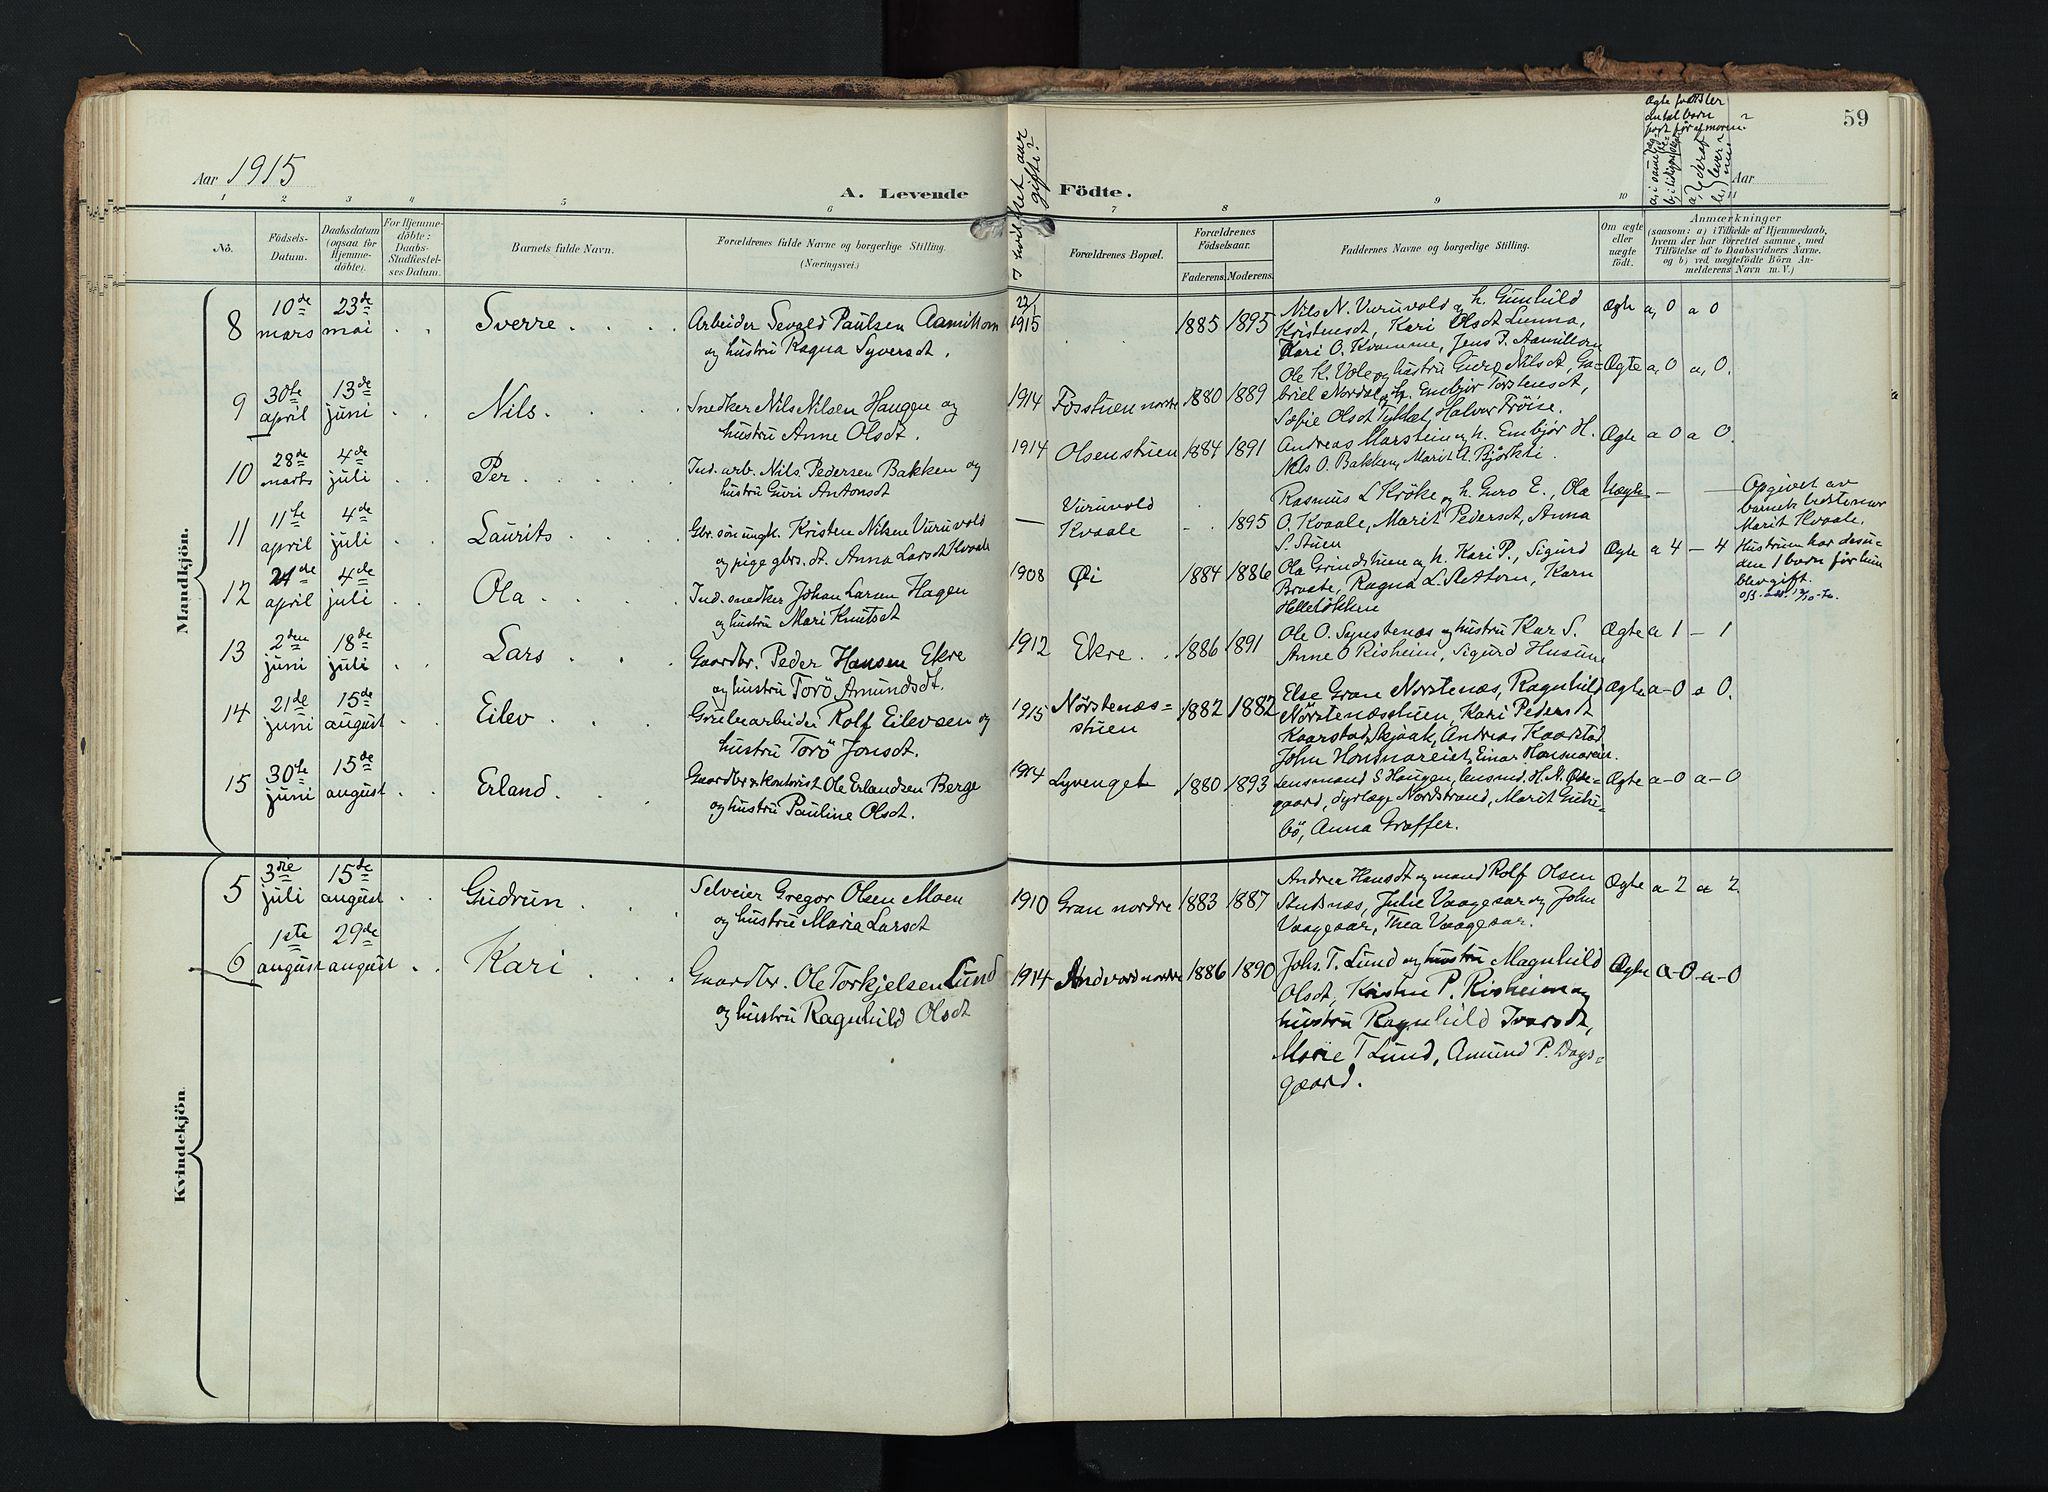 59
Aar 1915
A. Levende Födte.
Aar
I hvilket aar gifte?
1 2 3 4 5 6 7 8 9 10 11
No.
Födsels-Datum.
Daabsdatum (ogsaa for Hjemme-döbte).
For Hjemme-döbte: Daabs-Stadfæstel-ses Datum.
Barnets fulde Navn.
Forældrenes fulde Navne og borgerlige Stilling.
(Næringsvei.)
Forældrenes Bopæl.
Forældrenes Födselsaar.
Faderens. Moderens.
Faddernes Navne og borgerlige Stilling.
Om ægte eller uægte födt.
Anmærkninger
(saasom: a) i Tilfælde af Hjemmedaab, hvem der har forrettet samme, med Tilföielse af to Daabsvidners Navne, og b) ved uægtefödte Börn An-melderens Navn m. V.)
Mandkjön.
8 10de mars 23de mai Sverre
Arbeider Sevald Paulsen
og hustru Ragna Syversdt.
1915 1885 1895
Nils N. Vuruvold og h. Gunhild
Kristensdt, Kari Olsdt Lunna,
Kari O. Kvamme, Jens P.
Ægte a, 0 a 0
9 30te april 13de juni Nils.
Snedker Nils Nilsen Haugen og
hustru Anne Olsdt.
1914 Fosstuen nordre 1880 1889
Ole K. Vole og hustru Guro Nilsdt, Ga=
briel Nordal og h. Embjør Torstensdt,
Sofie Olsdt Halvor Trøise.
Ægte a, 0 a, 0.
10 28de marts 4de juli Per.
Ind. arb. Nils Pedersen Bakken og
hustru Guri Antonsdt
1914 Olsenstuen 1884 1891
Andreas Marstein og h. Embjør H.
Nils O. Bakken, Marit A. Bjørkli.
Ægte a 0 a 0.
11 11te april 4de juli Laurits
Gbr. søn ungk. Kristen Nilsen Vuruvold
og pige gbrs. dt. Anna Larsdt Kvaale
— Vuruvold
Kvaale 1895
Rasmus L Krøke og h. Guro E., Ola
O. Kvaale, Marit Pedersdt, Anna
S. Stuen
Uægte — —
Opgivet av
barnets bestemor
Marit Kvaale.
12 21de april 4de juli Ola
Ind. snedker Johan Larsen Hagen
og hustru Mari Knutsdt
1908 Øi 1884 1886
Ola Grindstuen og h. Kari P., Sigurd
Braate, Ragna L. Slettom, Karn
Helleløkken
Ægte a 4 — 4
Hustruen har desu-
den 1 barn før hun
blev gift.
13 2den juni 18de juli Lars
Gaardbr. Peder Hansen Ekre
og hustru Torö Amundsdt.
1912 Ekre. 1886 1891
Ole O. Synstenæs og hustru Kar S.
Anne O Risheim, Sigurd Husum
Ægte a 1 — 1
14 21de juni 15de august Eilev
Grubearbeider Rolf Eilevsen og
hustru Torö Jonsdt.
1915 Nørstenæs=
stuen 1882 1882
Else Gran Nørstenæs, Ragnhild
Nørstenæsstuen, Kari Pedersdt
Kaarstad, Skjaak, Andreas Kaarstad,
John Honsmoreiet, Einar
Ægte a—0 a 0.
15 30te juni 15de august Erland.
Gaardbr & kontorist Ole Erlandsen Berge
og hustru Pauline Olsdt.
1914 Lyvenget 1880 1893
Lensmand S Haugen, lensmd. H. N. Øde-
gaard, dyrlæge Nordstrand, Marit
bö, Anna Graffer.
Ægte a—0 a—0
Kvindekjön.
5 3die juli 15de august Gudrun
Selveier Gregor Olsen Moen
og hustru Maria Larsdt
1910 Gran nordre 1883 1887
Andrea Hansdt og mand Rolf Olsen
Studnæs, Julie Vaagesar og John
Vaagesar, Thea Vaagesar.
Ægte a 2 a 2
6 1ste august 29de august Kari
Gaardbr. Ole Torkjelsen Lund
og hustru Ragnhild Olsdt
1914 Andvord nordre 1886 1890
Johs. T. Lund og hustru Magnhild
Olsdt, Kristen P. Risheim og
hustru Ragnhild Ivarsdt,
Marie T Lund, Amund P. Dags=
gaard.
Ægte a—0 a—0